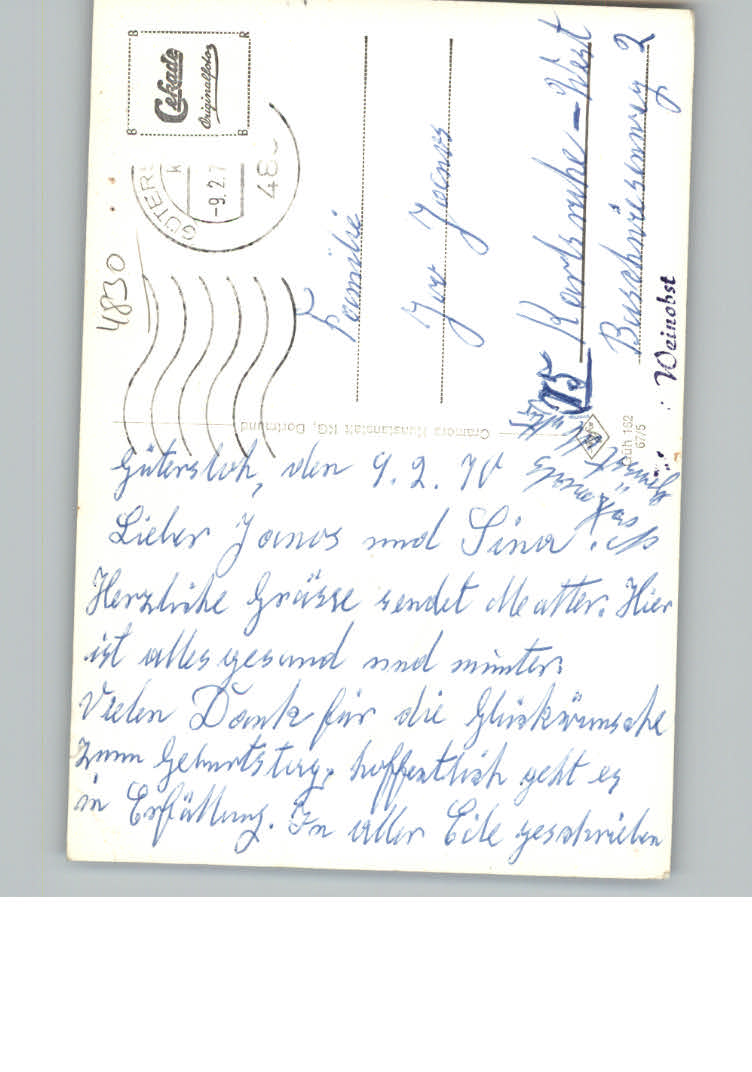 Gütersloh, den 9. 2. 70
Lieber Janos und Sina.
Herzliche Grüsse sendet Mutter. Hier
ist alles gesund und munter.
Vielen Dank für die Glückwünsche
zum Geburtstag, hoffentlich geht es
in Erfüllung. In aller Eile geschrieben
Familie
Joo Janos
75 Karlsruhe-West
Buschwiesenweg 2
Weinobst
4830
Cekade
Originalfotos
B R
B B
GÜTERS
-9.2.7
483
Cramers Kunstanstalt KG, Dortmund
Düh 162
67/5